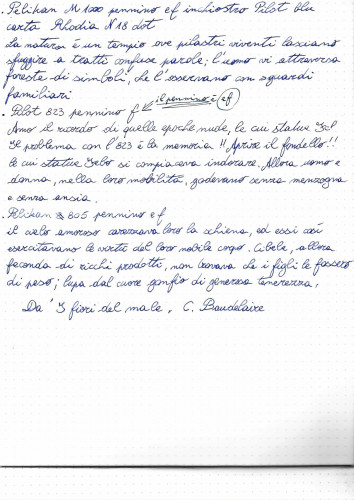 . Pelikan M 1000 pennino ef inchiostro Pilot blu
carta Rhodia N 18 dot
La natura è un tempio ove pilastri viventi lasciano
sfuggire a tratti confuse parole; l'uomo vi attraversa
foreste di simboli, che l'osservano con sguardi
familiari
. Pilot 823 pennino f il pennino è ef
Amo il ricordo di quelle epoche nude, le cui statue Feb
Il problema con l'823 è la memoria !! Aprire il fondello!!
le cui statue Febo si compiaceva indorare. Allora uomo e
donna, nella loro mobilità, godevano senza menzogna
e senza ansia.
. Pelikan 805 pennino ef
il cielo amoroso carezzava loro la schiena, ed essi così
esercitavano le virtù del loro nobile corpo. Cibele, allora
feconda di ricchi prodotti, non trovava che i figli le fossero
di peso; lupa dal cuore gonfio di generosa tenerezza,
Da 'I fiori del male, C. Baudelaire